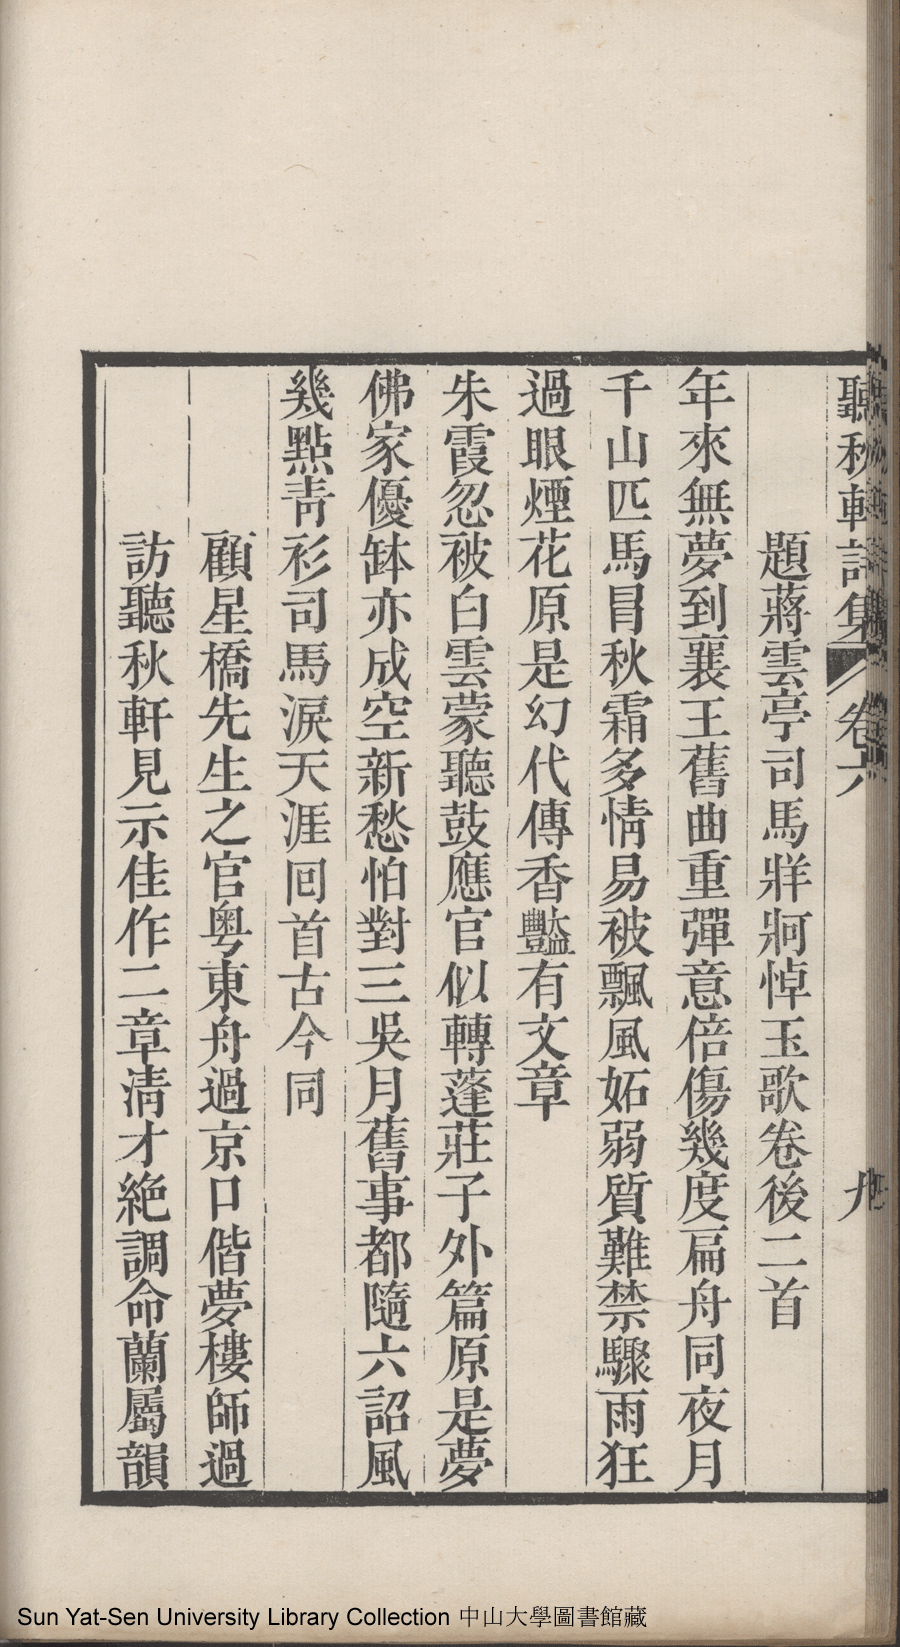 聽秋軒詩集 卷六 九
題蔣雲亭司馬牂牁悼玉歌卷後二首
年來無夢到襄王舊曲重彈意倍傷幾度扁舟同夜月
千山匹馬冒秋霜多情易被飄風妬弱質難禁驟雨狂
過眼煙花原是幻代傳香豔有文章
朱霞忽被白雲蒙聽鼓應官似轉蓬莊子外篇原是夢
佛家優缽亦成空新愁怕對三吳月舊事都隨六詔風
幾點青衫司馬淚天涯回首古今同
顧星橋先生之官粵東舟過京口偕夢樓師過
訪聽秋軒見示佳作二章清才絶調命蘭屬韻
Sun Yat-Sen University Library Collection 中山大學圖書館藏